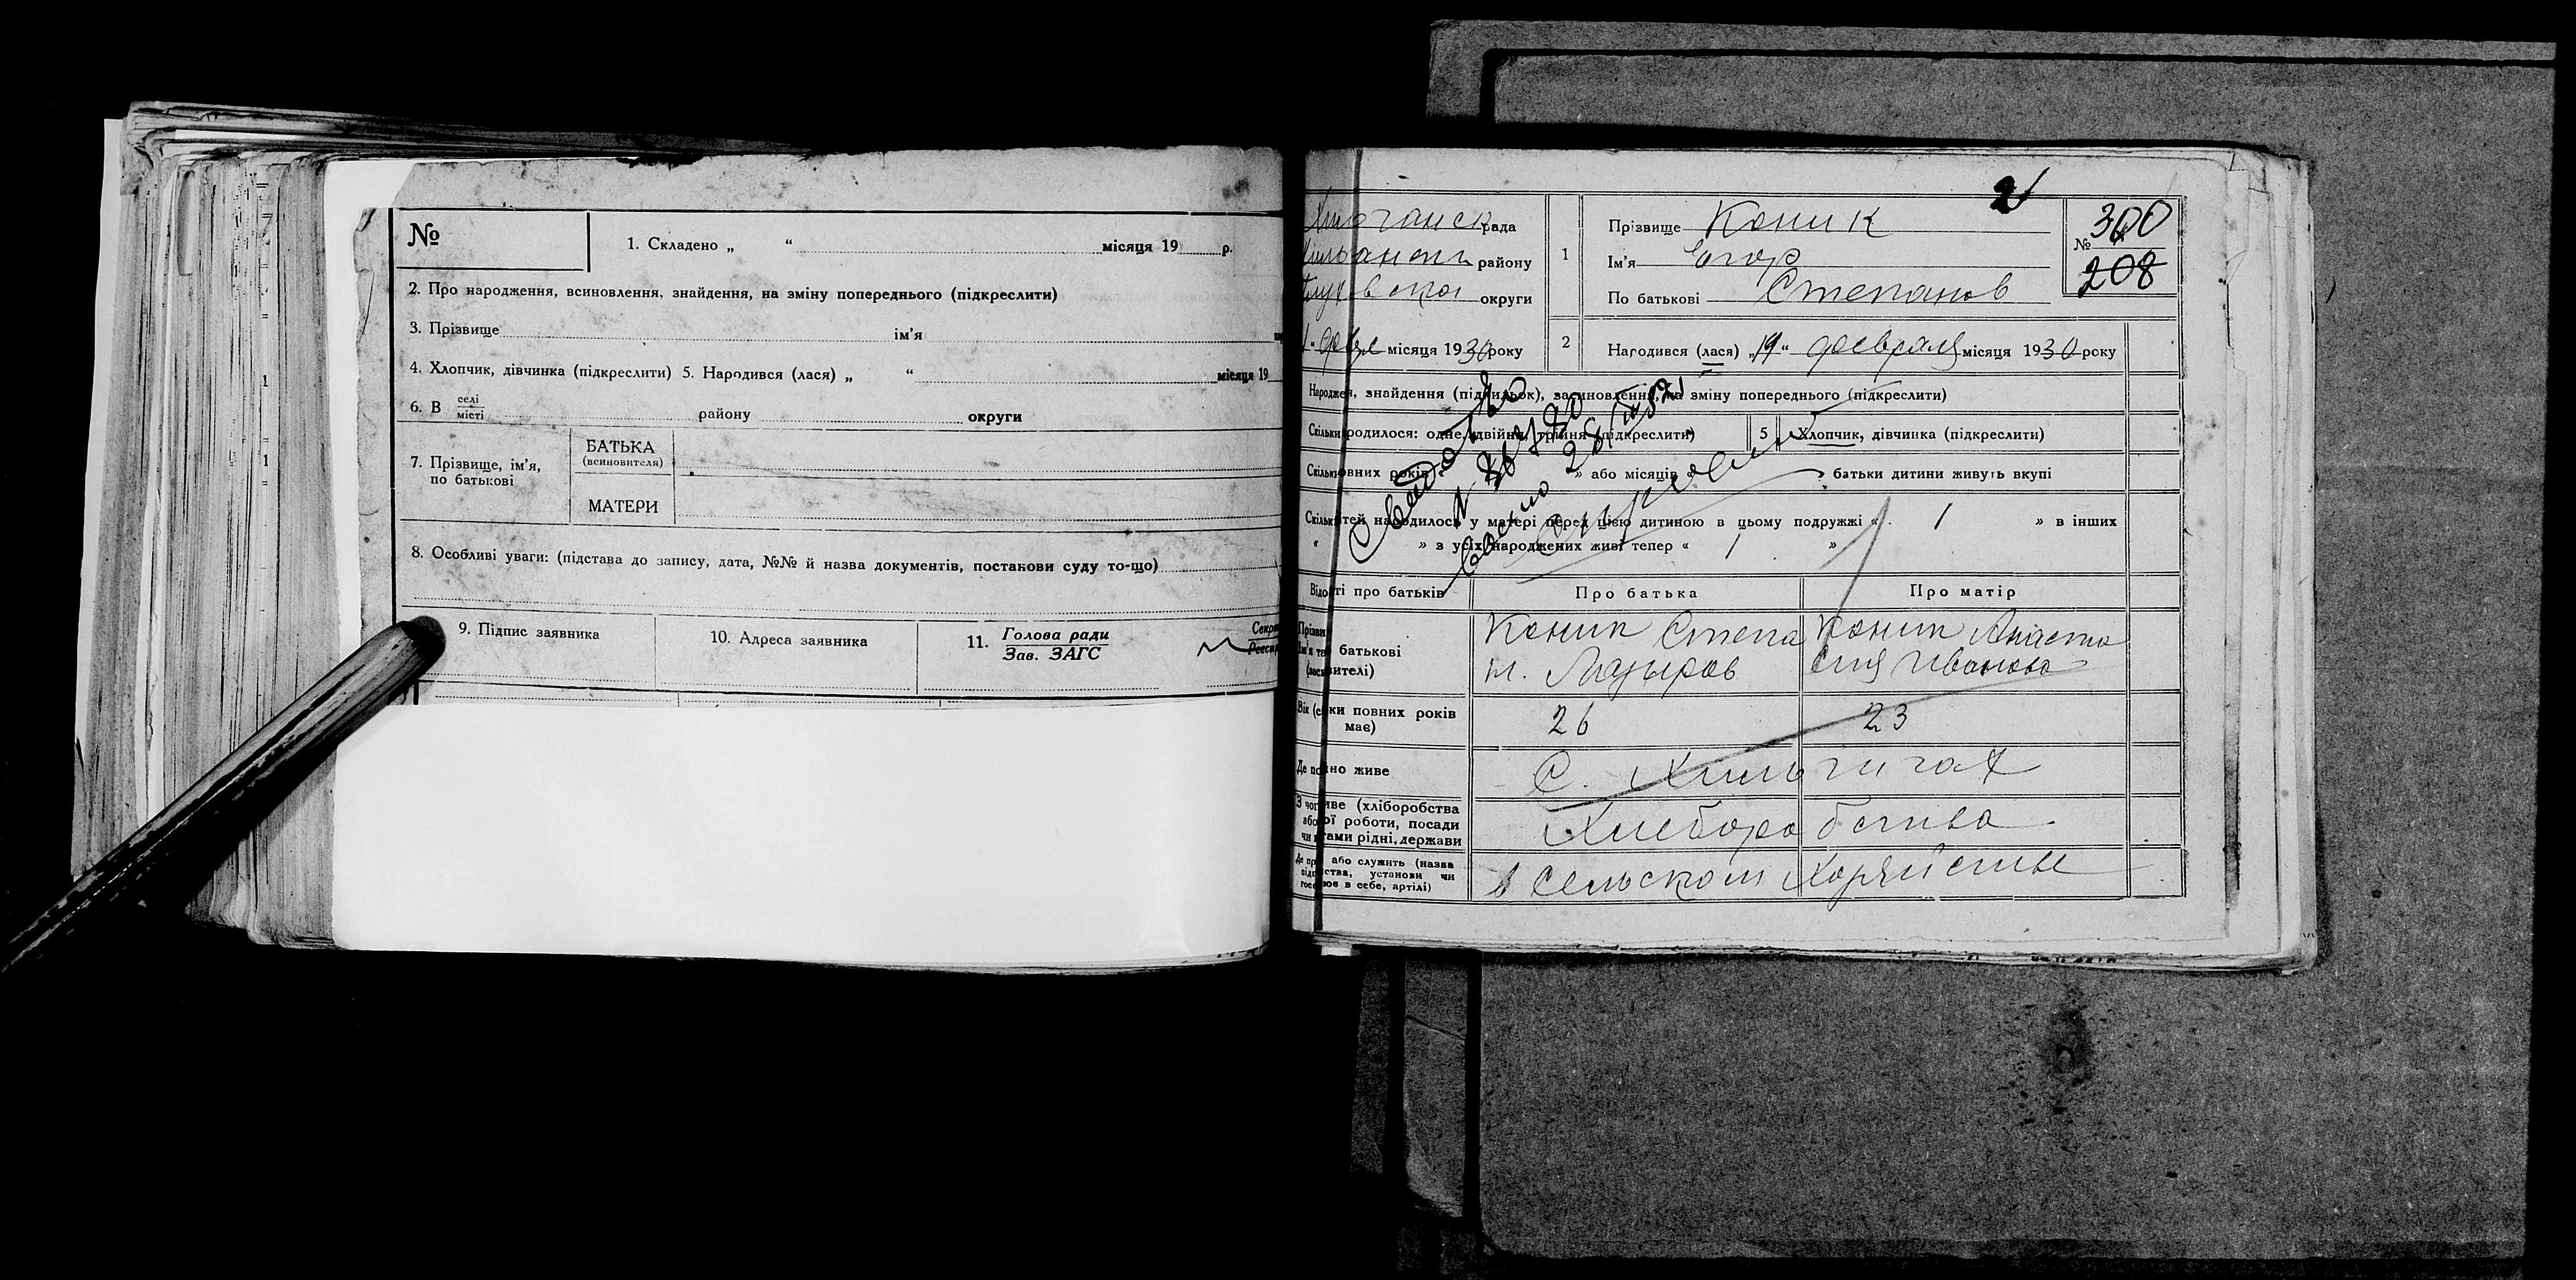 №
1. Складено „ “ місяця 19 р.
2. Про народження, всиновлення, знайдення, на зміну попереднього (підкреслити)
3. Прізвище ім’я
4. Хлопчик, дівчинка (підкреслити) 5. Народився (лася) „ “ місяця 19
6. В селі
місті
району округи
7. Прізвище, ім’я,
по батькові
БАТЬКА
(всиновителя)
МАТЕРИ
8. Особливі уваги: (підстава до запису, дата, №№ й назва документів, постанови суду то-що)
9. Підпис заявника
10. Адреса заявника
11. Голова ради
Зав. ЗАГС
2
рада
району
округи
місяця 1930 року
1
Прізвище Коник
Ім’я Егор
По батькові Степанов
№ 300
208
2
Народився (лася) „19“ февраля місяця 1930 року
знайдения (підкидьок), всиновлення, на зміну попереднього (підкреслити)
родилося: одне, двійня, трійня (підкреслити)
5 Хлопчик, дівчинка (підкреслити)
або місяців
батьки дитини живуть вкупі
у матері перед цією дитиною в цьому подружжі « 1 » в інших
« » з усіх народжених живі тепер « 1 »
28/III 82
про батьків
Про батька
Про матір
батькові
Коник Степа
н. Лазыров
Коник Анаста
сия Иванова
повних років
має)
26
23
живе
С. Хильчичах
(хліборобства
роботи, посади
рідні, держави
Хлеборобства
або служить (назва
установи чи
в себе, артілі)
в сельском Хозяйстве